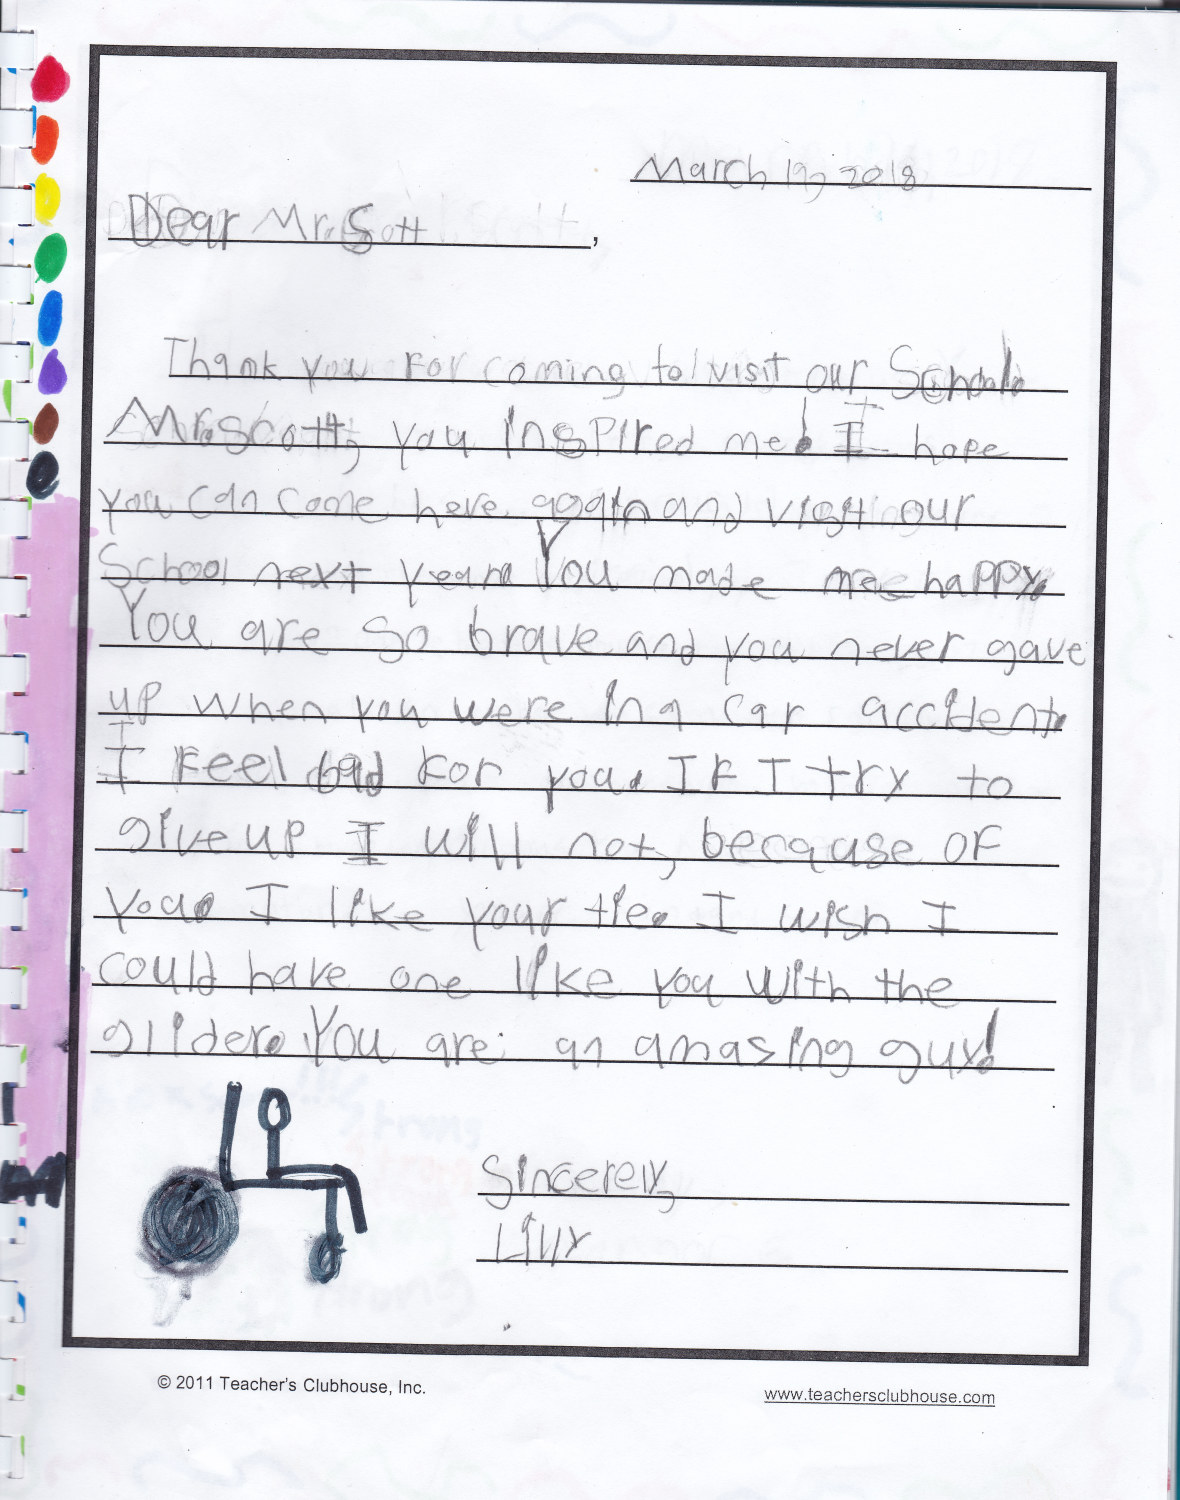 March 19, 2018
Dear Mr. Sott,
Thank you For coming to visit our School.
Mr. Scott, you inspired me! I hope
you can come here again and visit our
School next year. You made me happy.
You are so brave and you never gave
up when you were in a car accident.
I Feel bad For you. IF I try to
give up I will not, because OF
you. I like your tie. I wish I
could have one like you with the
glider. You are an amasing guy!
Sincerely,
Lilly
© 2011 Teacher's Clubhouse, Inc.
www.teachersclubhouse.com